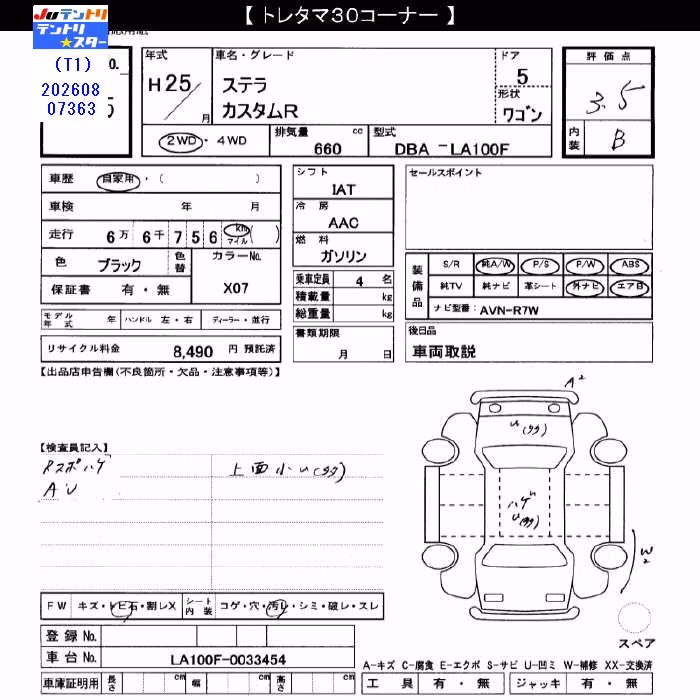 【 トレタマ30コーナー 】
JUテントリ
テントリ★スター
(T1)
202608
07363
No.
5
年式
H 25/ 月
車名・グレード
ステラ
カスタムR
ドア
5
形状
ワゴン
評価点
3.5
内装
B
2WD・4WD
排気量 660 cc
型式 DBA −LA100F
車歴 自家用・( )
車検 年 月
走行 6万 6千 7 5 6 km マイル ( )
色 ブラック 色替 カラーNo. X07
保証書 有・無
モデル年式 年 ハンドル 左・右 ディーラー・並行
リサイクル料金 8,490 円 預託済
シフト
IAT
冷房
AAC
燃料
ガソリン
乗車定員 4 名
積載量 kg
総重量 kg
書類期限
月 日
セールスポイント
装備品
S/R 純A/W P/S P/W ABS
純TV 純ナビ 革シート 外ナビ エアB
ナビ型番: AVN-R7W
後日品
車両取説
【出品店申告欄(不良箇所・欠品・注意事項等)】
【検査員記入】
Rスポハゲ
AU
上面小U(タタ)
A2
U(タタ)
ハゲ
U(タタ)
W2
スペア
FW キズ・トビ石・割レX シート内装 コゲ・穴・汚レ・シミ・破レ・スレ
登録 No.
車台 No. LA100F-0033454
車庫証明用 長さ cm 幅 cm 高さ cm
A-キズ C-腐食 E-エクボ S-サビ U-凹ミ W-補修 XX-交換済
工具 有・無 ジャッキ 有・無